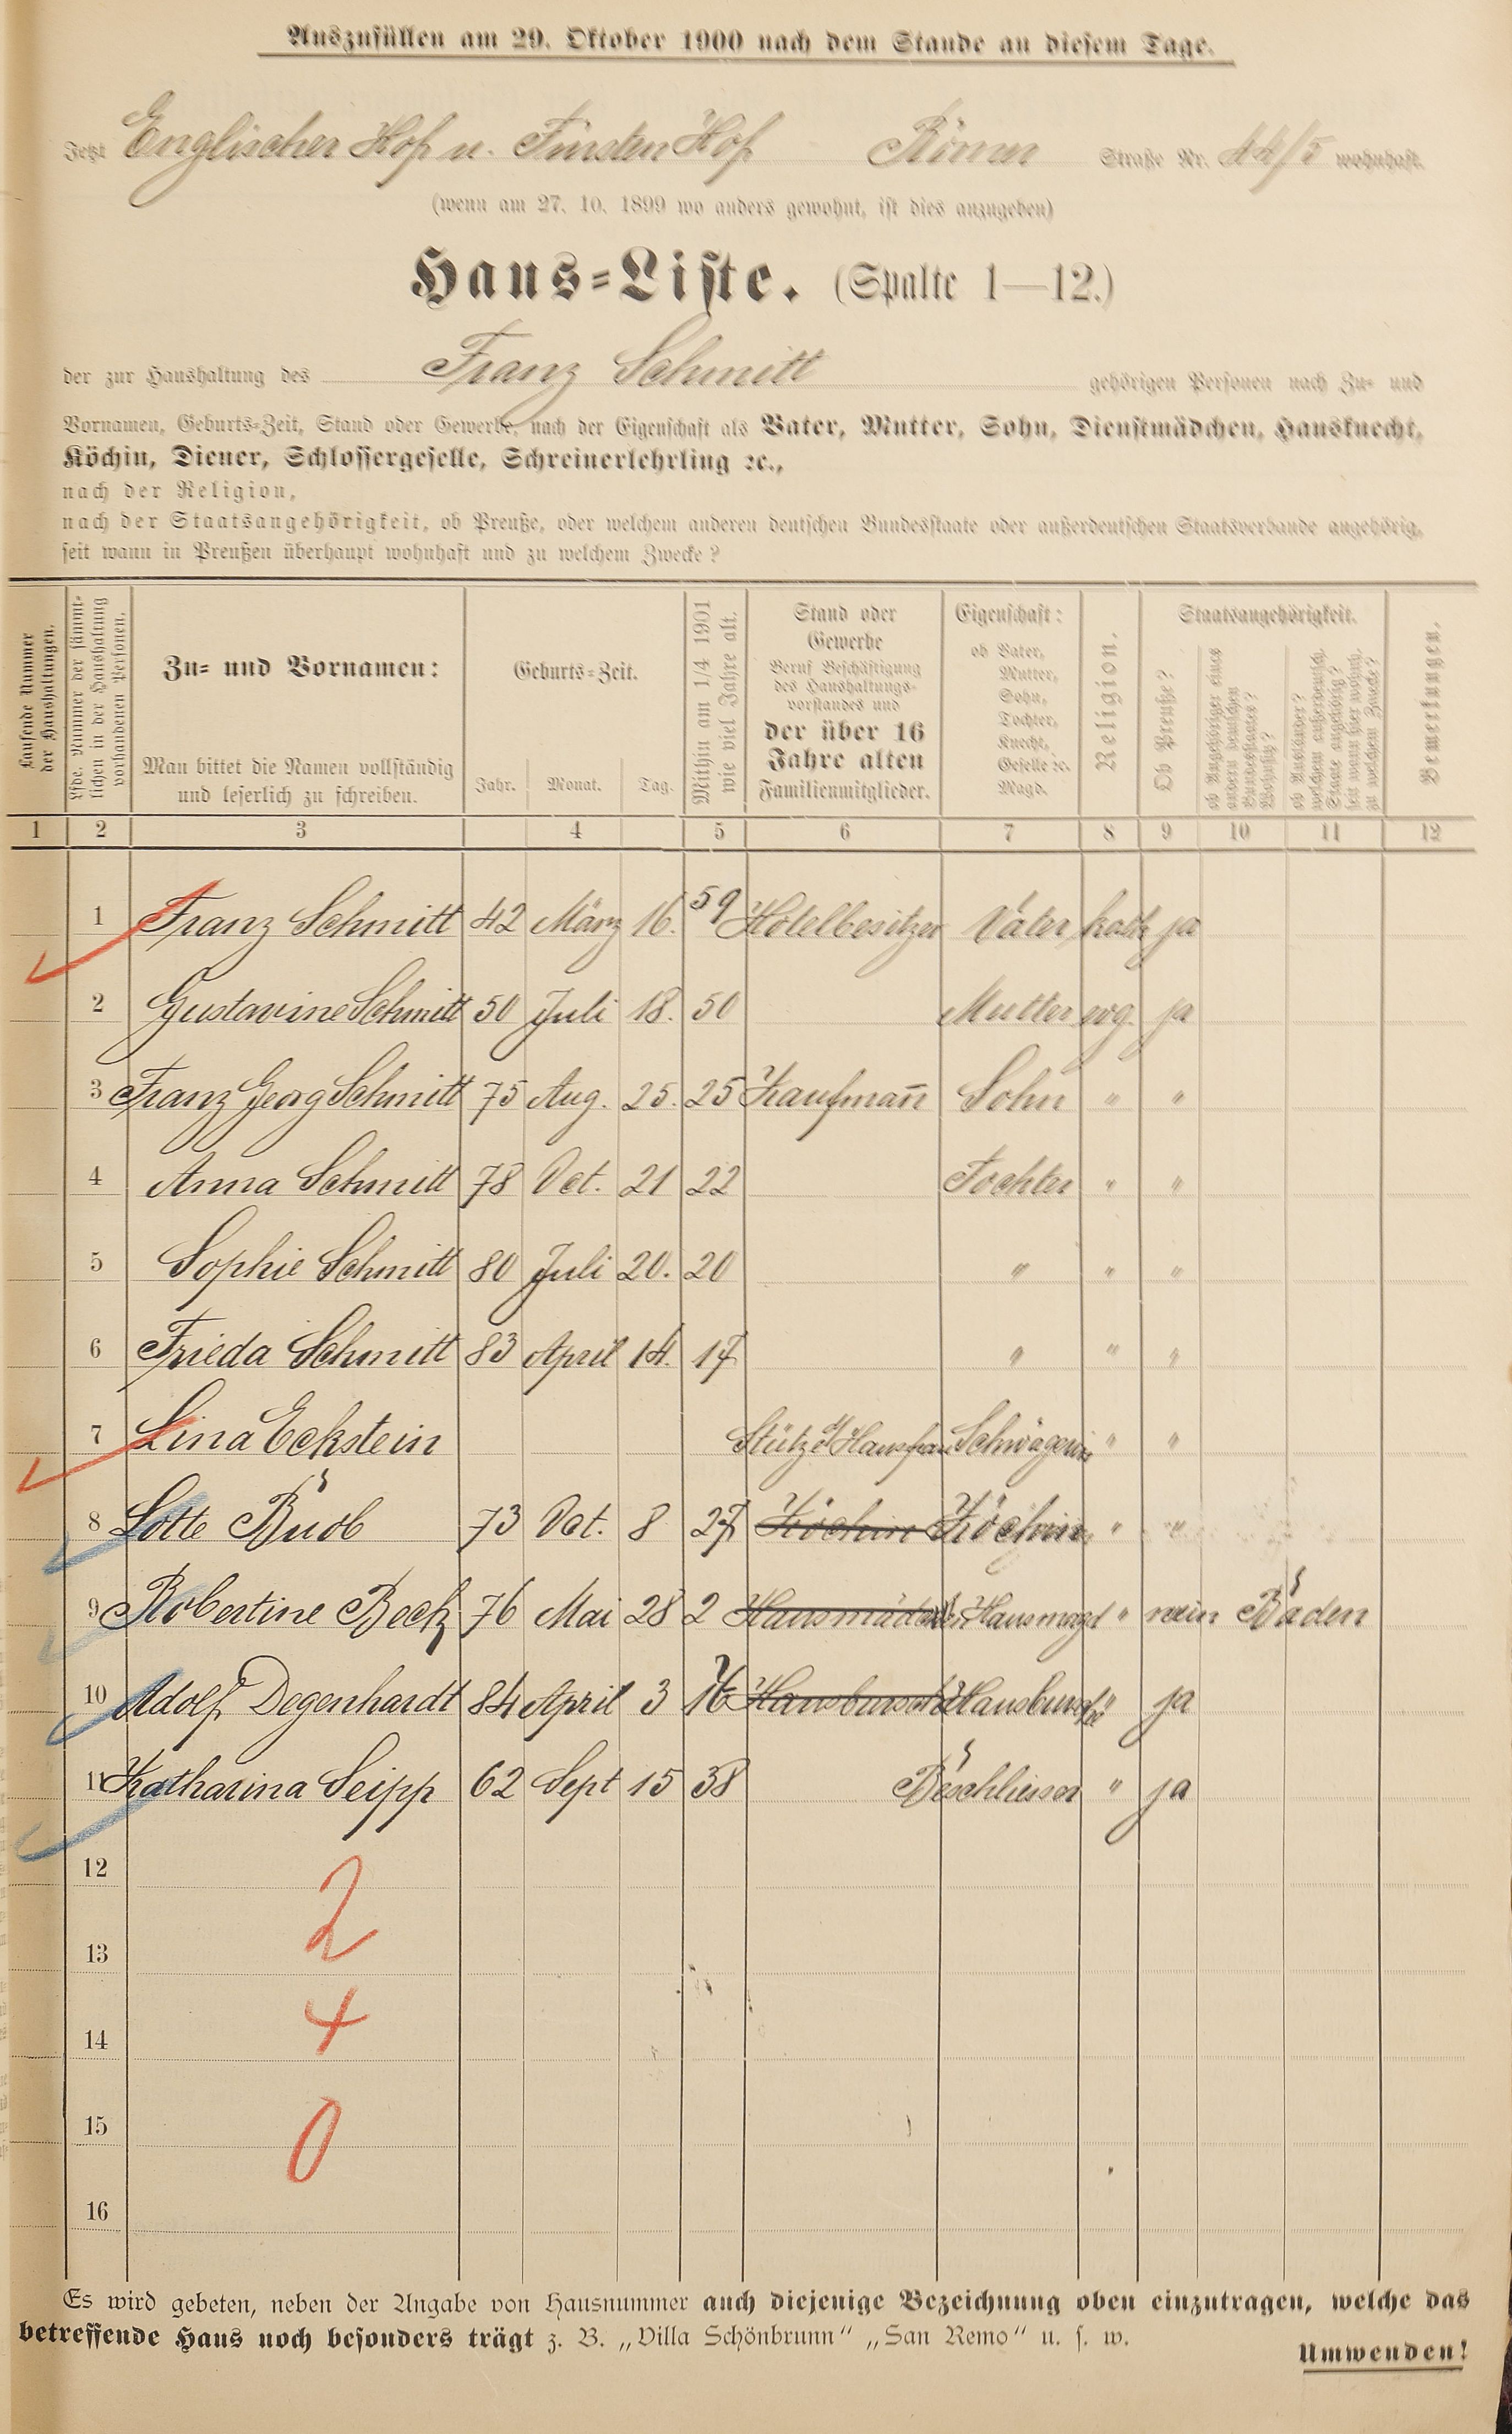 Auszufüllen am 29. Oktober 1900 nach dem Stande an diesem Tage.
Jetzt Englischer Hof u. Fürsten Hof Römer Straße Nr. 44/5 wohnhaft.
(wenn am 27. 10. 1899 wo anders gewohnt, ist dies anzugeben)
Haus=Liste. (Spalte 1—12.)
der zur Haushaltung des Franz Schmitt gehörigen Personen nach Zu= und
Vornamen, Geburts=Zeit, Stand oder Gewerbe, nach der Eigenschaft als Vater, Mutter, Sohn, Dienstmädchen, Hausknecht,
Köchin, Diener, Schlossergeselle, Schreinerlehrling ꝛc.,
nach der Religion,
nach der Staatsangehörigkeit, ob Preuße, oder welchem anderen deutschen Bundesstaate oder außerdeutschen Staatsverbande angehörig,
seit wann in Preußen überhaupt wohnhaft und zu welchem Zwecke?
Laufende Nummer
der Haushaltungen.
Lfde. Nummer der sämmt=
lichen in der Haushaltung
vorhandenen Personen.
Zu= und Vornamen:
Man bittet die Namen vollständig
und leserlich zu schreiben.
Geburts=Zeit.
Jahr. Monat. Tag.
Mithin am 1/4 1901
wie viel Jahre alt.
Stand oder
Gewerbe
Beruf Beschäftigung
des Haushaltungs=
vorstandes und
der über 16
Jahre alten
Familienmitglieder.
Eigenschaft:
ob Vater,
Mutter,
Sohn,
Tochter,
Knecht,
Geselle ꝛc.
Magd.
Religion.
Staatsangehörigkeit.
Ob Preuße?
ob Angehöriger eines
andern deutschen
Bundesstaates?
Wohnsitz?
ob Ausländer?
welchem außerdeutsch.
Staate angehörig?
seit wann hier wohnh.
zu welchem Zwecke?
Bemerkungen.
1 2 3 4 5 6 7 8 9 10 11 12
1 Franz Schmitt 42 März 16. 59 Hotelbesitzer Vater kath ja
2 Gustavine Schmitt 50 Juli 18. 50 Mutter evg. ja
3 Franz Georg Schmitt 75 Aug. 25. 25 Kaufmañ Sohn " "
4 Anna Schmitt 78 Oct. 21 22 Tochter " "
5 Sophie Schmitt 80 Juli 20. 20 " " "
6 Frieda Schmitt 83 April 14. 17 " " "
7 Lina Eckstein Stütze d Hausfrau Schwägerin " "
8 Lotte Buob 73 Oct. 8 27 Köchin Köchin " "
9 Robertine Beck 76 Mai 28 2 Hausmädchen Hausmagd " nein Baden
10 Adolf Degenhardt 84 April 3 16 Hausbursche Hausbursche " ja
11 Katharina Seipp 62 Sept 15 38 Beschliesser " ja
12
2
13
4
14
15
0
16
Es wird gebeten, neben der Angabe von Hausnummer auch diejenige Bezeichnung oben einzutragen, welche das
betreffende Haus noch besonders trägt z. B. „Villa Schönbrunn" „San Remo" u. s. w.
Umwenden!